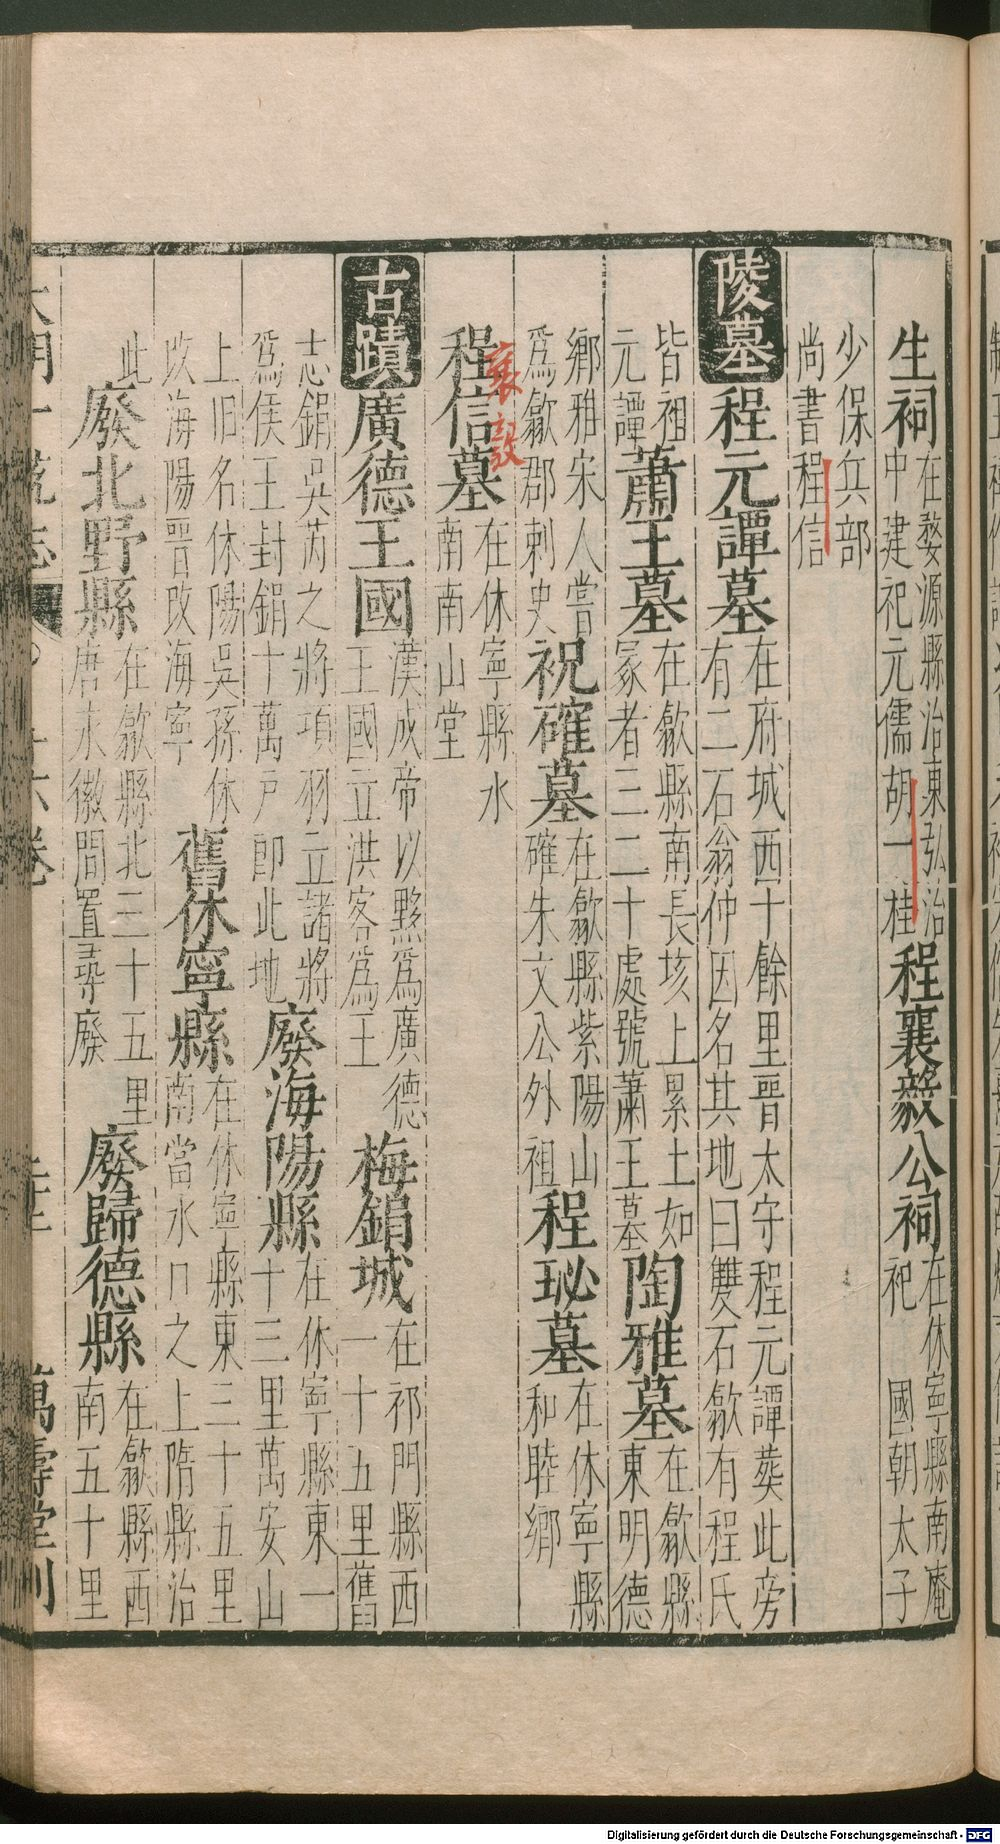 生祠在婺源縣治東弘治中建祀元儒胡一桂程襄毅公祠在休寧縣南庵祀 國朝太子
少保兵部尚書程信
陵墓程元譚墓在府城西十餘里晋太守程元譚葬此旁有二石翁仲因名其地曰雙石歙有程氏
皆祖元譚蕭王墓在歙縣南長垓上累土如冢者三二十處號蕭王墓陶雅墓在歙縣東明德
鄉雅宋人嘗爲歙郡刺史祝確墓在歙縣紫陽山確朱文公外祖程珌墓在休寧縣和睦鄉
程信墓在休寧縣水南南山堂
襄毅
古蹟廣德王國漢成帝以黟爲廣德王國立洪客爲王梅鋗城在祁門縣西一十五里舊
志鋗吳芮之將項羽立諸將爲侯王封鋗十萬戸即此地廢海陽縣在休寧縣東一十三里萬安山
上旧名休陽吳孫休改海陽晋改海寧舊休寧縣在休寧縣東三十五里南當水口之上隋縣治
此廢北野縣在歙縣北三十五里唐永徽間置尋廢廢歸德縣在歙縣西南五十里
大明一統志 十六卷 萬壽堂刊
Digitalisierung gefördert durch die Deutsche Forschungsgemeinschaft - DFG